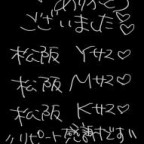 ありがとう
ございました♡
松阪 Yサマ♡
松阪 Mサマ♡
松阪 Kサマ♡
"リピート感謝です"